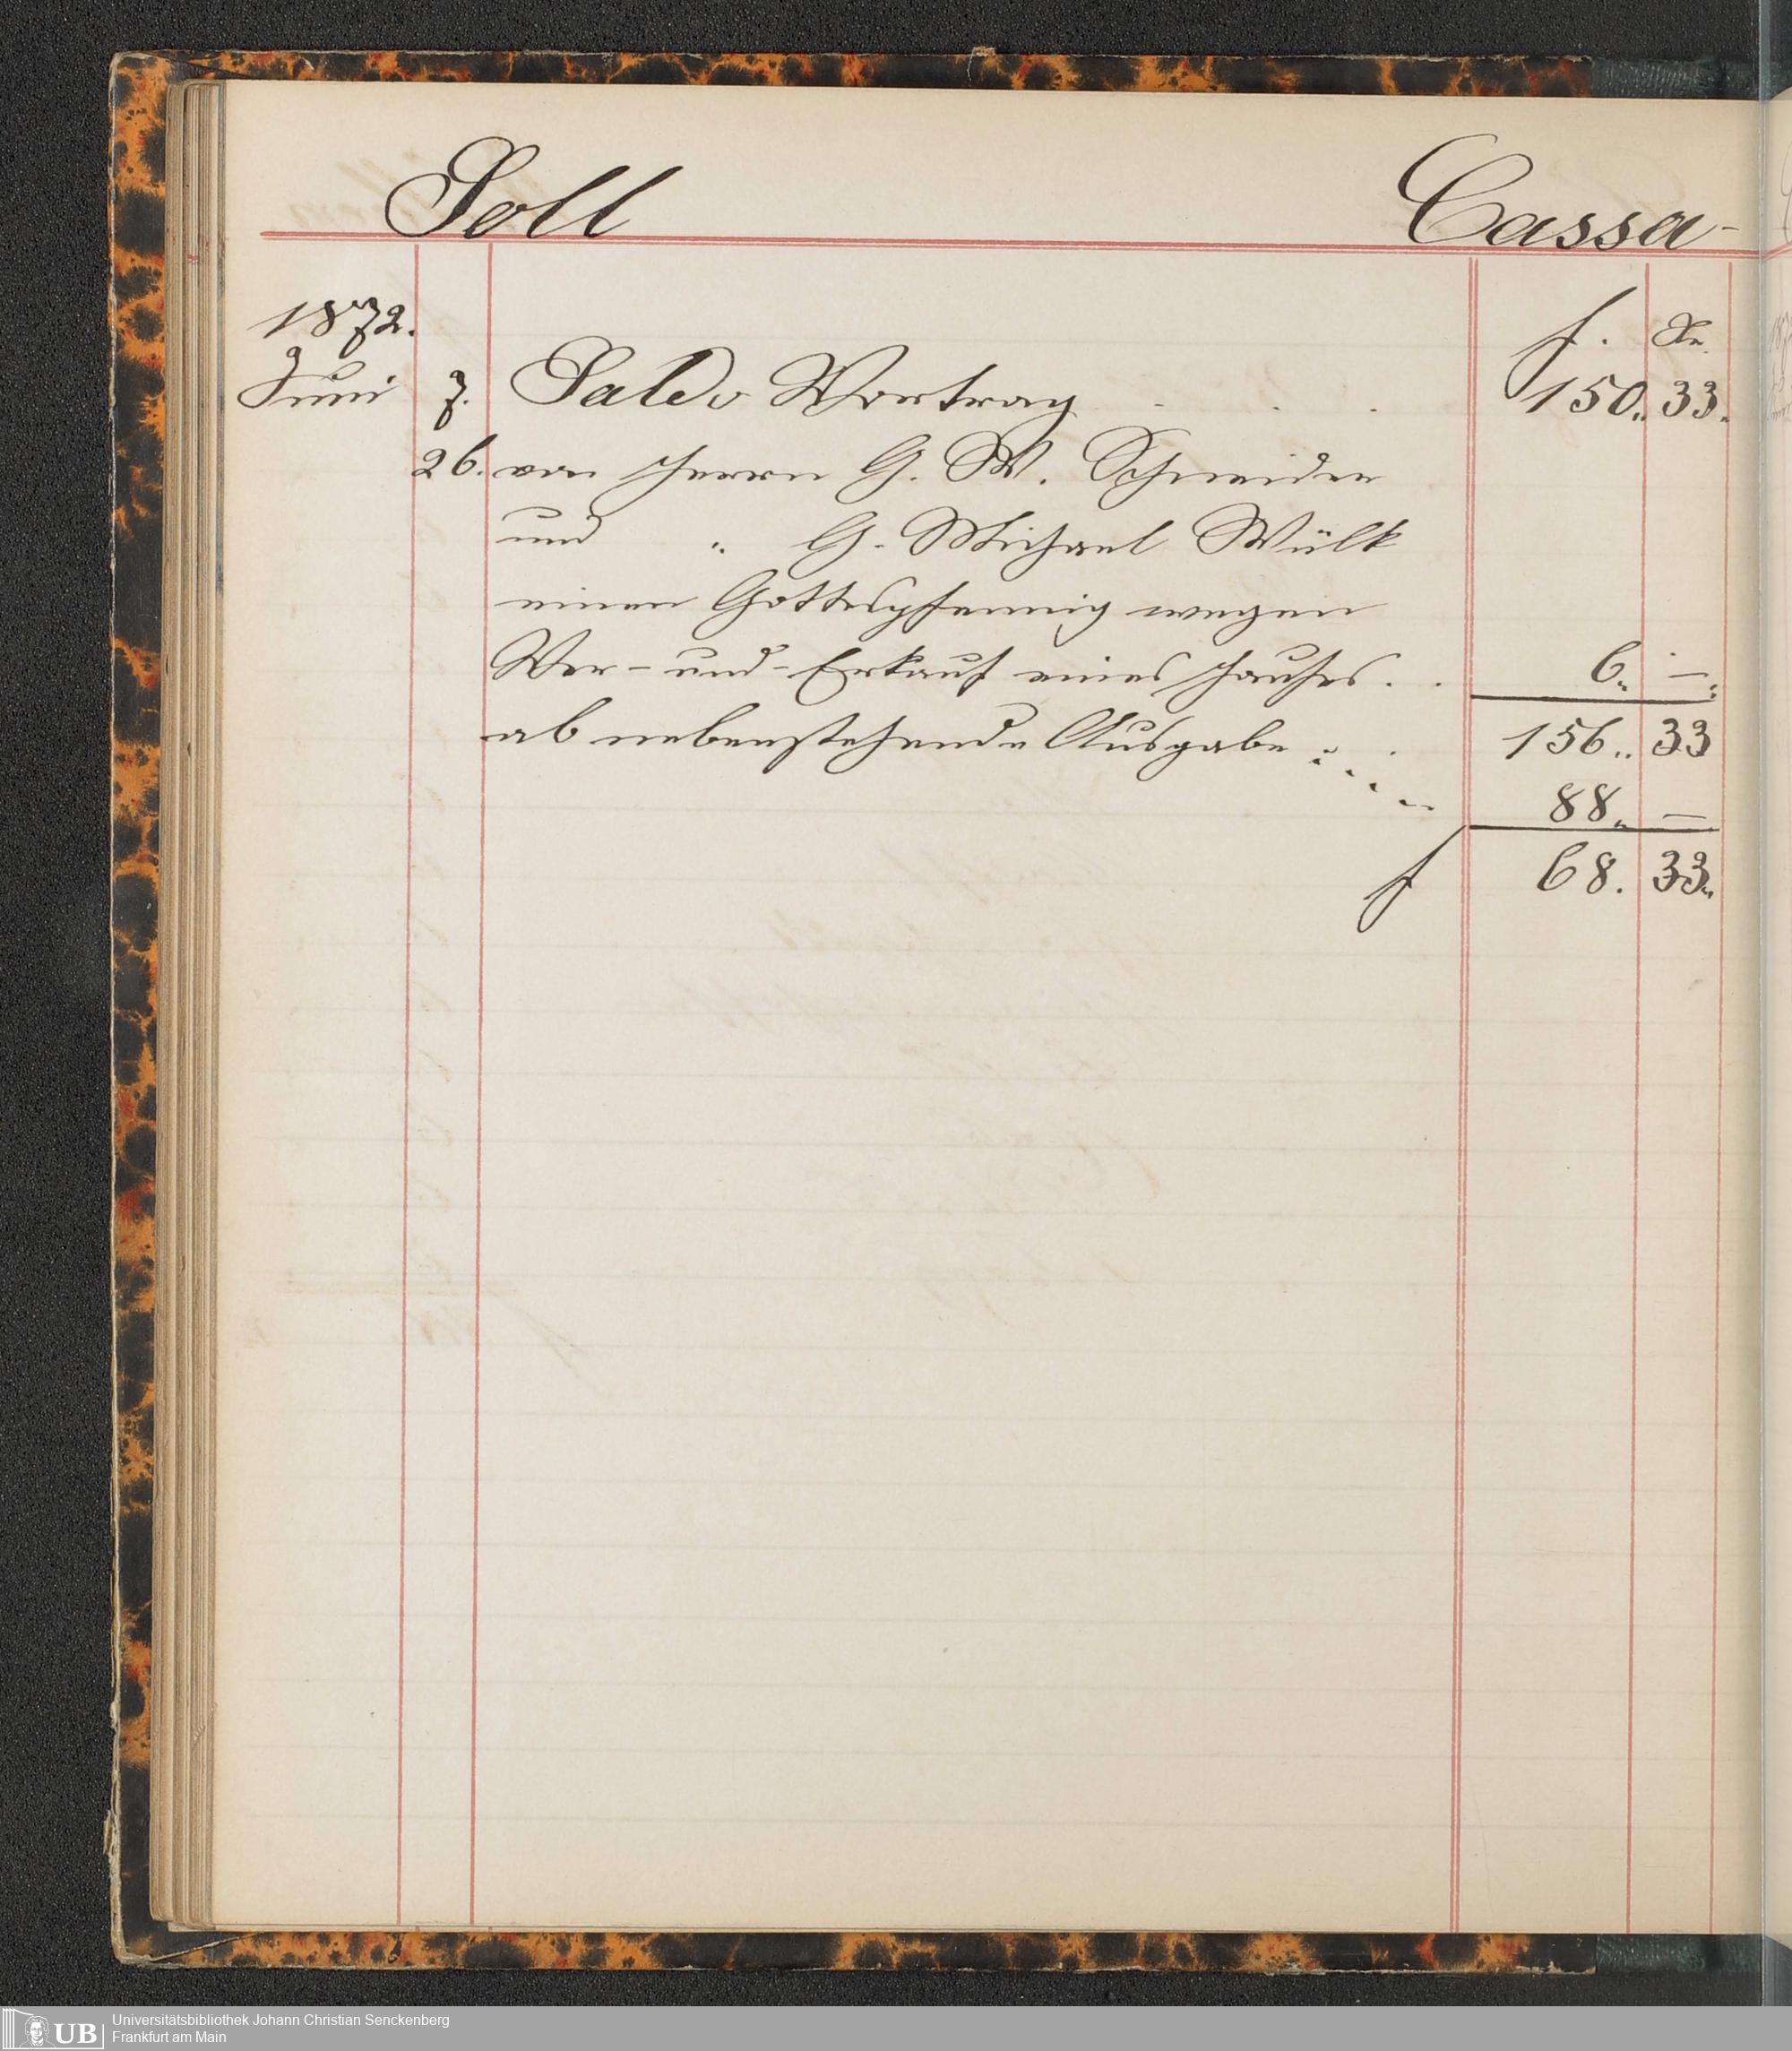 Soll Cassa-
1872. f. Xr.
Juni 7. Saldo Vortrag . . . 150. 33.
26. von Herrn G. W. Schneider
und " G. Michael Wülk
einen Gottespfennig wegen
Ver- und Erkauf eines Hauses . . 6. —
ab nebenstehende Ausgabe . . 156. 33
88. —
f 68. 33.
UB Universitätsbibliothek Johann Christian Senckenberg
Frankfurt am Main